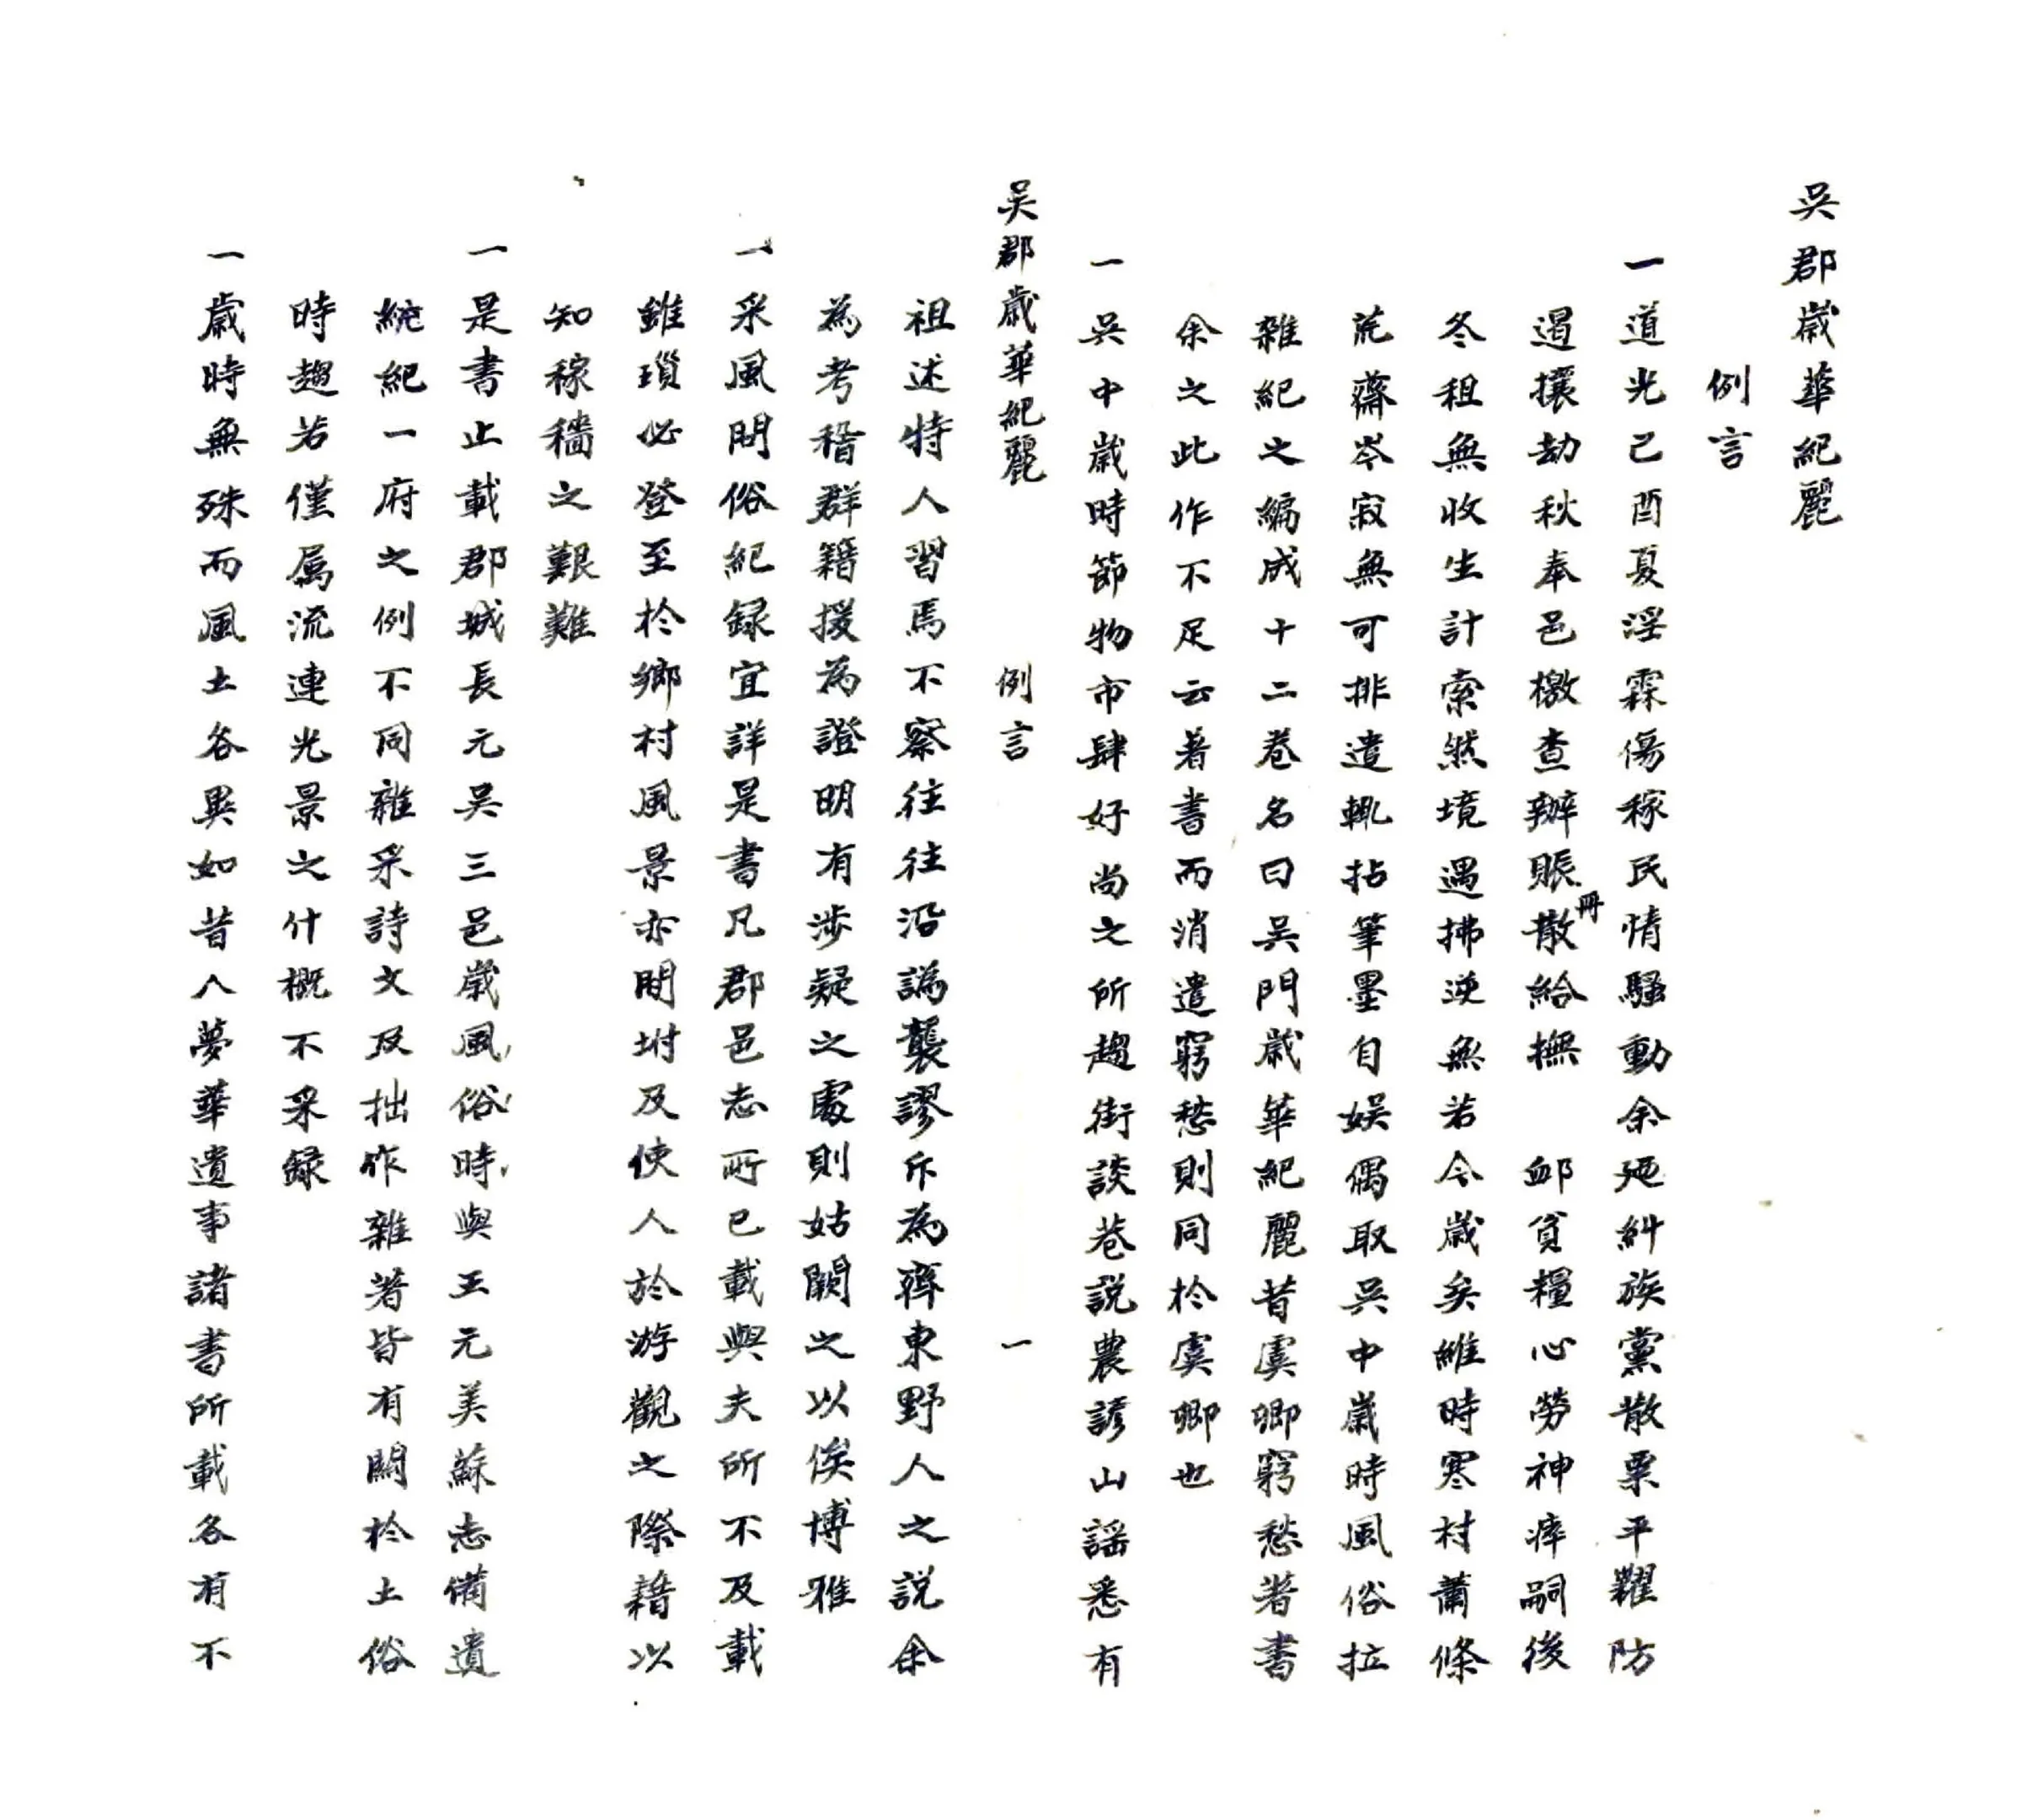 吳郡歲華紀麗
例言
一道光己酉夏淫霖傷稼民情騷動余廵糾族黨散粟平糶防
遏攘劫秋奉邑檄查辦賬冊散給撫　䘏貧糧心勞神瘁嗣後
冬租無收生計索然境遇拂逆無若今歲矣維時寒村蕭條
荒齋岑寂無可排遣輒拈筆墨自娛偶取吳中歲時風俗拉
雜紀之編成十二卷名曰吳門歲華紀麗昔虞卿窮愁著書
余之此作不足云著書而消遣窮愁則同於虞卿也
一吳中歲時節物市肆好尚之所趨街談巷説農諺山謡悉有
吳郡歲華紀麗　例言　一
祖述特人習焉不察往往沿譌襲謬斥為齊東野人之説余
為考稽群籍援為證明有涉疑之處則姑闕之以俟博雅
一采風問俗紀録宜詳是書凡郡邑志所已載與夫所不及載
雖瑣必登至於鄉村風景亦間坿及使人於游觀之際藉以
知稼穡之艱難
一是書止載郡城長元吳三邑歲風俗時與王元美蘇志備遺
統紀一府之例不同雜采詩文及拙作雜著皆有關於土俗
時趨若僅属流連光景之什概不采録
一歲時無殊而風土各異如昔人夢華遺事諸書所載各有不